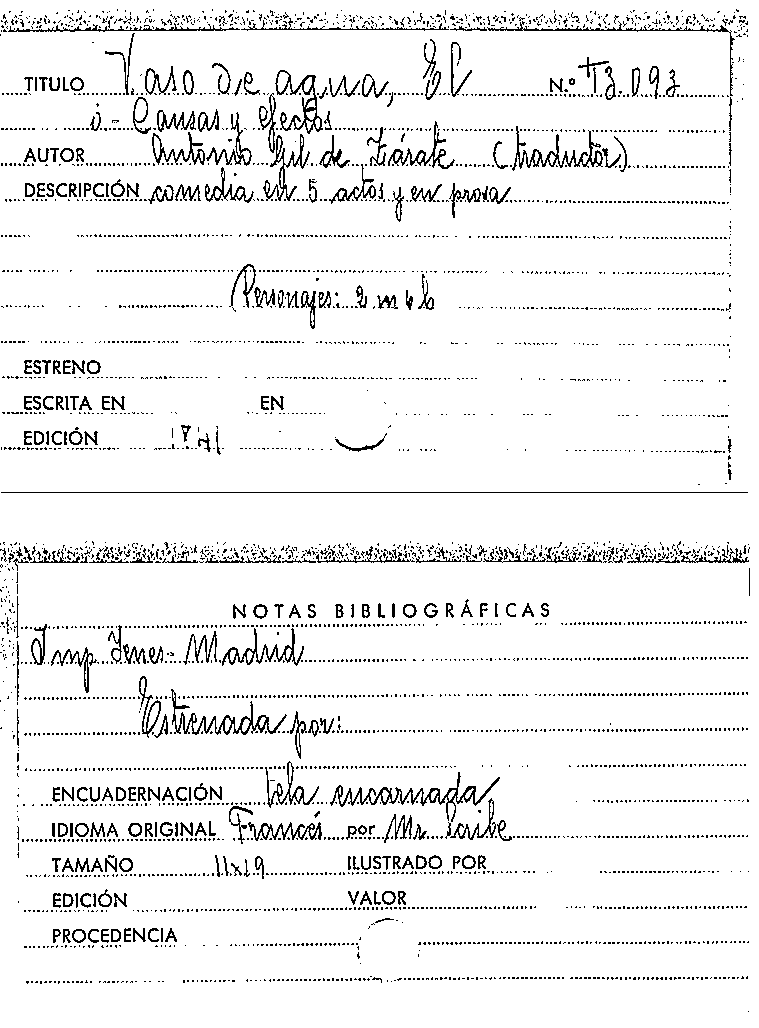 TITULO Vaso de agua, El N.º T3.093
ó - Causas y efectos
AUTOR Antonio Gil de Zárate (traductor)
DESCRIPCIÓN comedia en 5 actos y en prosa
Personajes: 2 m y h
ESTRENO
ESCRITA EN EN
EDICIÓN 1841
NOTAS BIBLIOGRÁFICAS
Imp Yenes - Madrid
Estrenada por:
ENCUADERNACIÓN tela encarnada
IDIOMA ORIGINAL Francés por Mr Scribe
TAMAÑO 11x19 ILUSTRADO POR
EDICIÓN VALOR
PROCEDENCIA